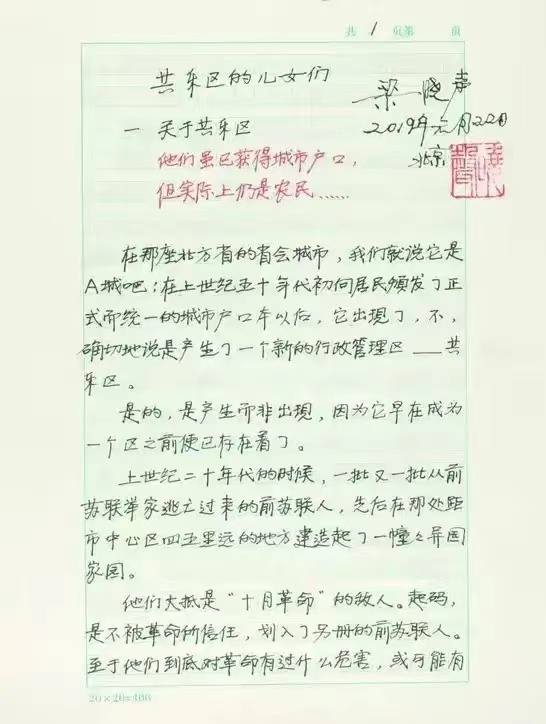 共 1 页第 页
共乐区的儿女们
梁晓声
一 关于共乐区
2019年元月22日
他们虽已获得城市户口，
北京
但实际上仍是农民……
在那座北方省的省会城市，我们就说它是
A城吧；在上世纪五十年代初向居民颁发了正
式而统一的城市户口本以后，它出现了，不，
确切地说是产生了一个新的行政管理区——共
乐区。
是的，是产生而非出现，因为它早在成为
一个区之前便已存在着了。
上世纪二十年代的时候，一批又一批从前
苏联举家逃亡过来的前苏联人，先后在那处距
市中心区四五里远的地方建造起了一幢々异国
家园。
他们大抵是“十月革命”的敌人。起码，
是不被革命所信任，划入了另册的前苏联人。
至于他们到底对革命有过什么危害，或可能有
20×20=400